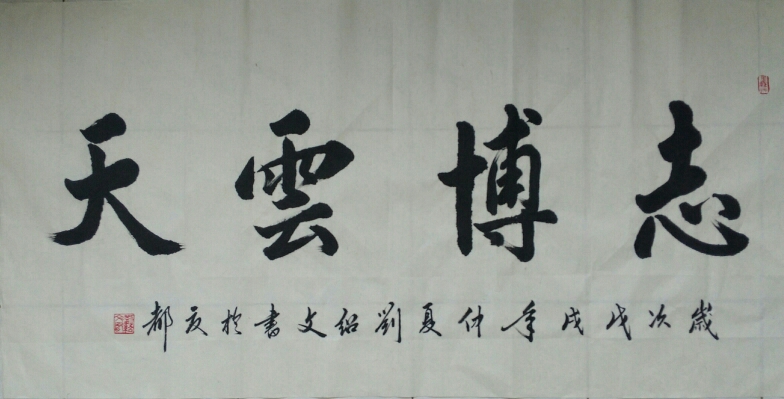 志博雲天
歲次戊戌年仲夏劉紹文書於夜都